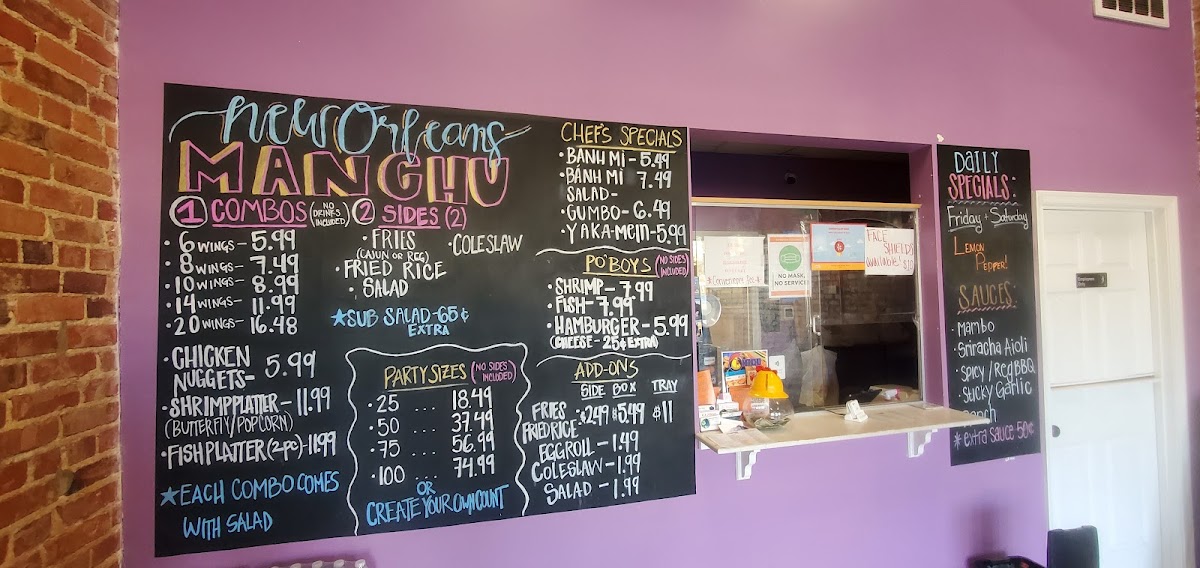 New Orleans
MANCHU
1 COMBOS (NO DRINKS INCLUDED)
· 6 WINGS - 5.99
· 8 WINGS - 7.49
· 10 WINGS - 8.99
· 14 WINGS - 11.99
· 20 WINGS - 16.48
· CHICKEN
NUGGETS - 5.99
· SHRIMP PLATTER - 11.99
(BUTTERFLY/POPCORN)
· FISH PLATTER (2pc) - 11.99
★ EACH COMBO COMES
WITH SALAD
2 SIDES (2)
· FRIES
(CAJUN OR REG)
· FRIED RICE
· SALAD
· COLESLAW
★ SUB SALAD - 65¢
EXTRA
PARTY SIZES (NO SIDES INCLUDED)
· 25 ... 18.49
· 50 ... 37.49
· 75 ... 56.99
· 100 ... 74.99
OR
CREATE YOUR OWN COUNT
CHEF'S SPECIALS
· BANH MI - 5.49
· BÁNH MÌ 7.49
SALAD -
· GUMBO - 6.49
· YAKA-MEIN - 5.99
PO'BOYS (NO SIDES INCLUDED)
· SHRIMP - 7.99
· FISH - 7.99
· HAMBURGER - 5.99
(CHEESE - 25¢ EXTRA)
ADD-ONS
SIDE BOX TRAY
FRIES · $2.49 $5.49 $11
FRIED RICE
EGGROLL - 1.49
COLESLAW - 1.99
SALAD - 1.99
NO MASK,
NO SERVICE
FACE
SHIELDS
AVAILABLE!
$10
DAILY
SPECIALS:
Friday + Saturday
LEMON
PEPPER!
SAUCES:
· Mambo
· Sriracha Aioli
· Spicy / Red BBQ
· Sticky Garlic
· Ranch
* extra sauce 50¢